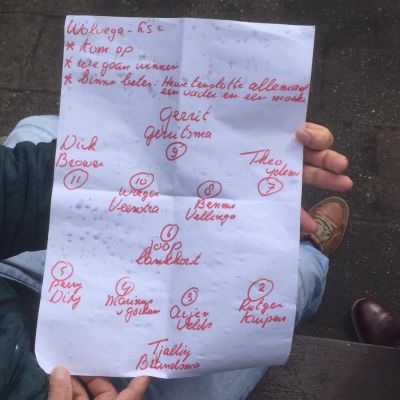 Wolvega - FSC
* Kom op
* we gaan winnen
* Binne beter. Hewe tenslotte allemaal
een vader en een moeder
Gerrit
Gerritsma
9
Dick
Brower
11
10
Wieger
Veenstra
8
Benno
Vellinga
Theo
7
6
Joop
Lankhaet
5
Perry
4
Marinus
v Gochum
3
Arjen
Velds
2
Rutger
Kuipers
Tjalliy
Brandsma